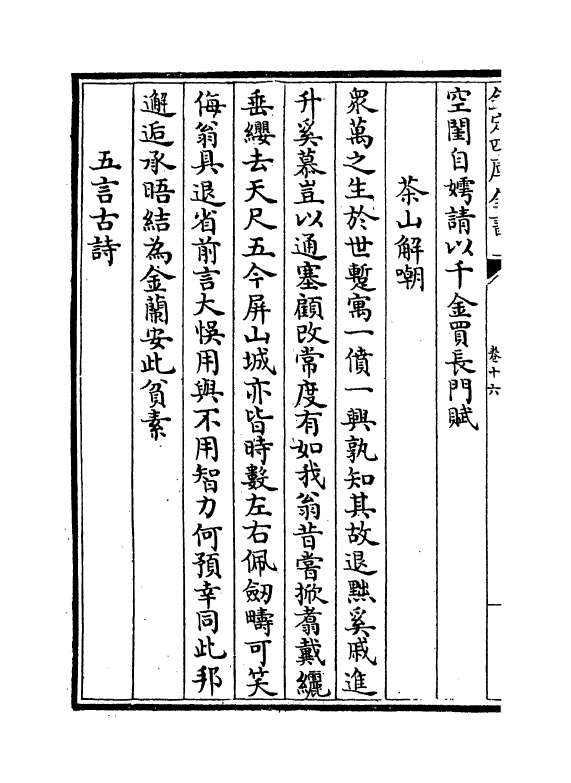 欽定四庫全書
卷十六
空閨自嫮請以千金買長門賦
茶山解嘲
眾萬之生於世蹔寓一僨一興孰知其故退黜奚戚進
升奚慕豈以通塞顧改常度有如我翁昔嘗掀翥戴纚
垂纓去天尺五今屏山城亦皆時數左右佩劒疇可笑
侮翁具退省前言大悞用與不用智力何預幸同此邦
邂逅承晤結為金蘭安此貧素
五言古詩